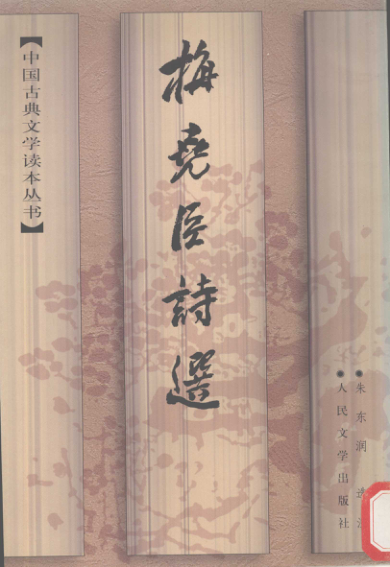 【中国古典文学读本丛书】
梅尧臣詩選
●朱东润 选
●人民文学出版社